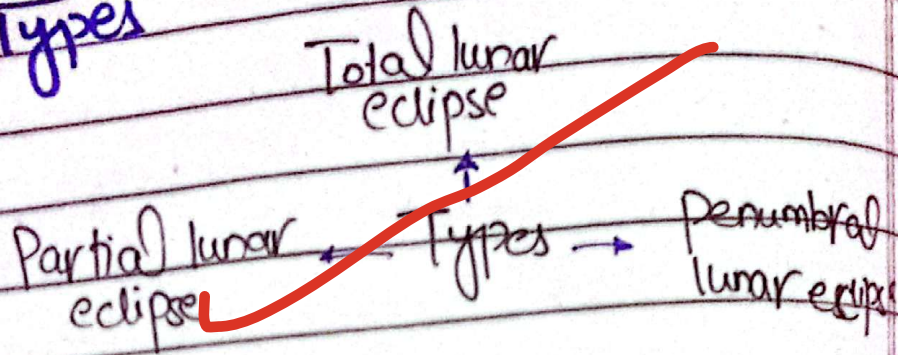 Types
Total lunar
eclipse
Partial lunar
eclipse
Types
Penumbral
lunar eclipse